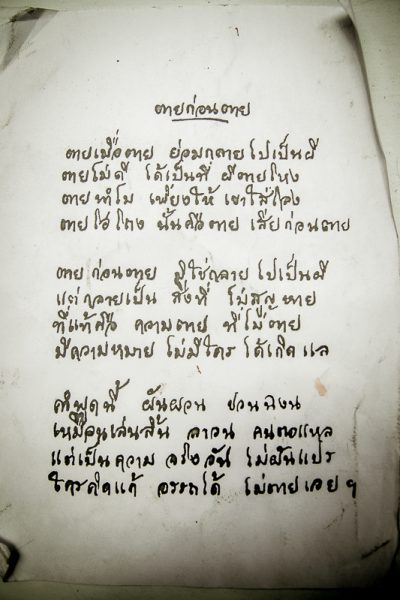 ตายก่อนตาย
ตายเมื่อตาย ย่อมกลายไปเป็นผี
ตายไม่ดี ได้เป็นที่ ผีตายโหง
ตายทำไม เพียงให้ เขาใส่โลง
ตายโอ่โถง นั้นคือตาย เสียก่อนตาย
ตายก่อนตาย มิใช่กลายไปเป็นผี
แต่กลายเป็น สิ่งที่ ไม่สูญหาย
ที่แท้คือ ความตาย ที่ไม่ตาย
มีความหมาย ไม่มีใคร ได้เกิดแล
คำพูดนี้ ผันผวน ชวนฉงน
เหมือนเล่นลิ้น ลาวน คนตอแหล
แต่เป็นความ จริงอัน ไม่ผันแปร
ใครคิดแก้ อรรถได้ ไม่ตายเลย ฯ